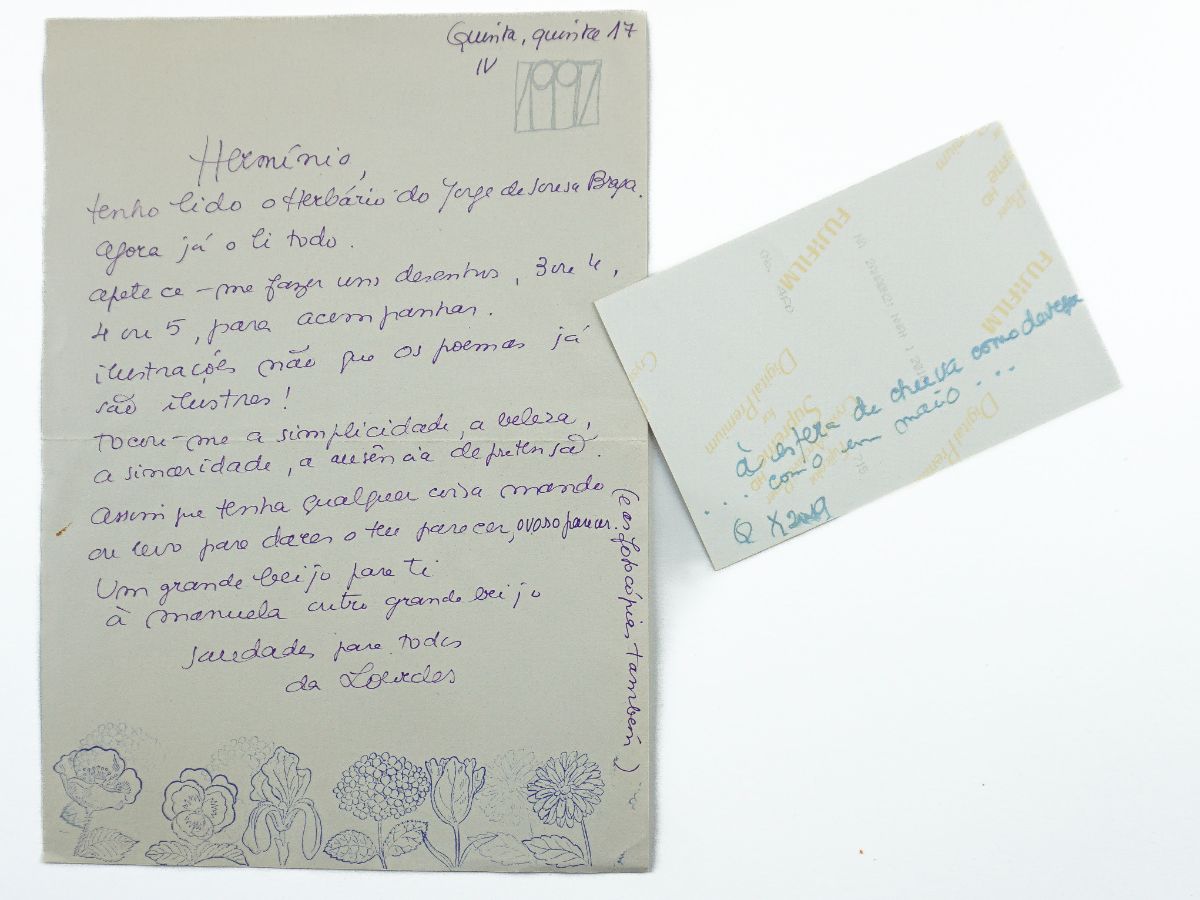 Quinta, quinta 17
IV
1997
Hermínio,
tenho lido o Herbário do Jorge de Sousa Braga.
agora já o li todo.
apetece-me fazer uns desenhos, 3 ou 4,
4 ou 5, para acompanhar.
ilustrações não que os poemas já
são ilustres!
tocou-me a simplicidade, a beleza,
a sinceridade, a ausência de pretensão.
assim que tenha qualquer coisa mando
ou levo para dares o teu parecer, o vosso parecer.
(e as fotocópias também)
Um grande beijo para ti
à manuela outro grande beijo
saudades para todos
da Lourdes
FUJIFILM
FUJIFILM
Digital Premium
Digital Premium
Supreme HD
à espera de chuva como devesa
... como em maio ...
Q X 2019